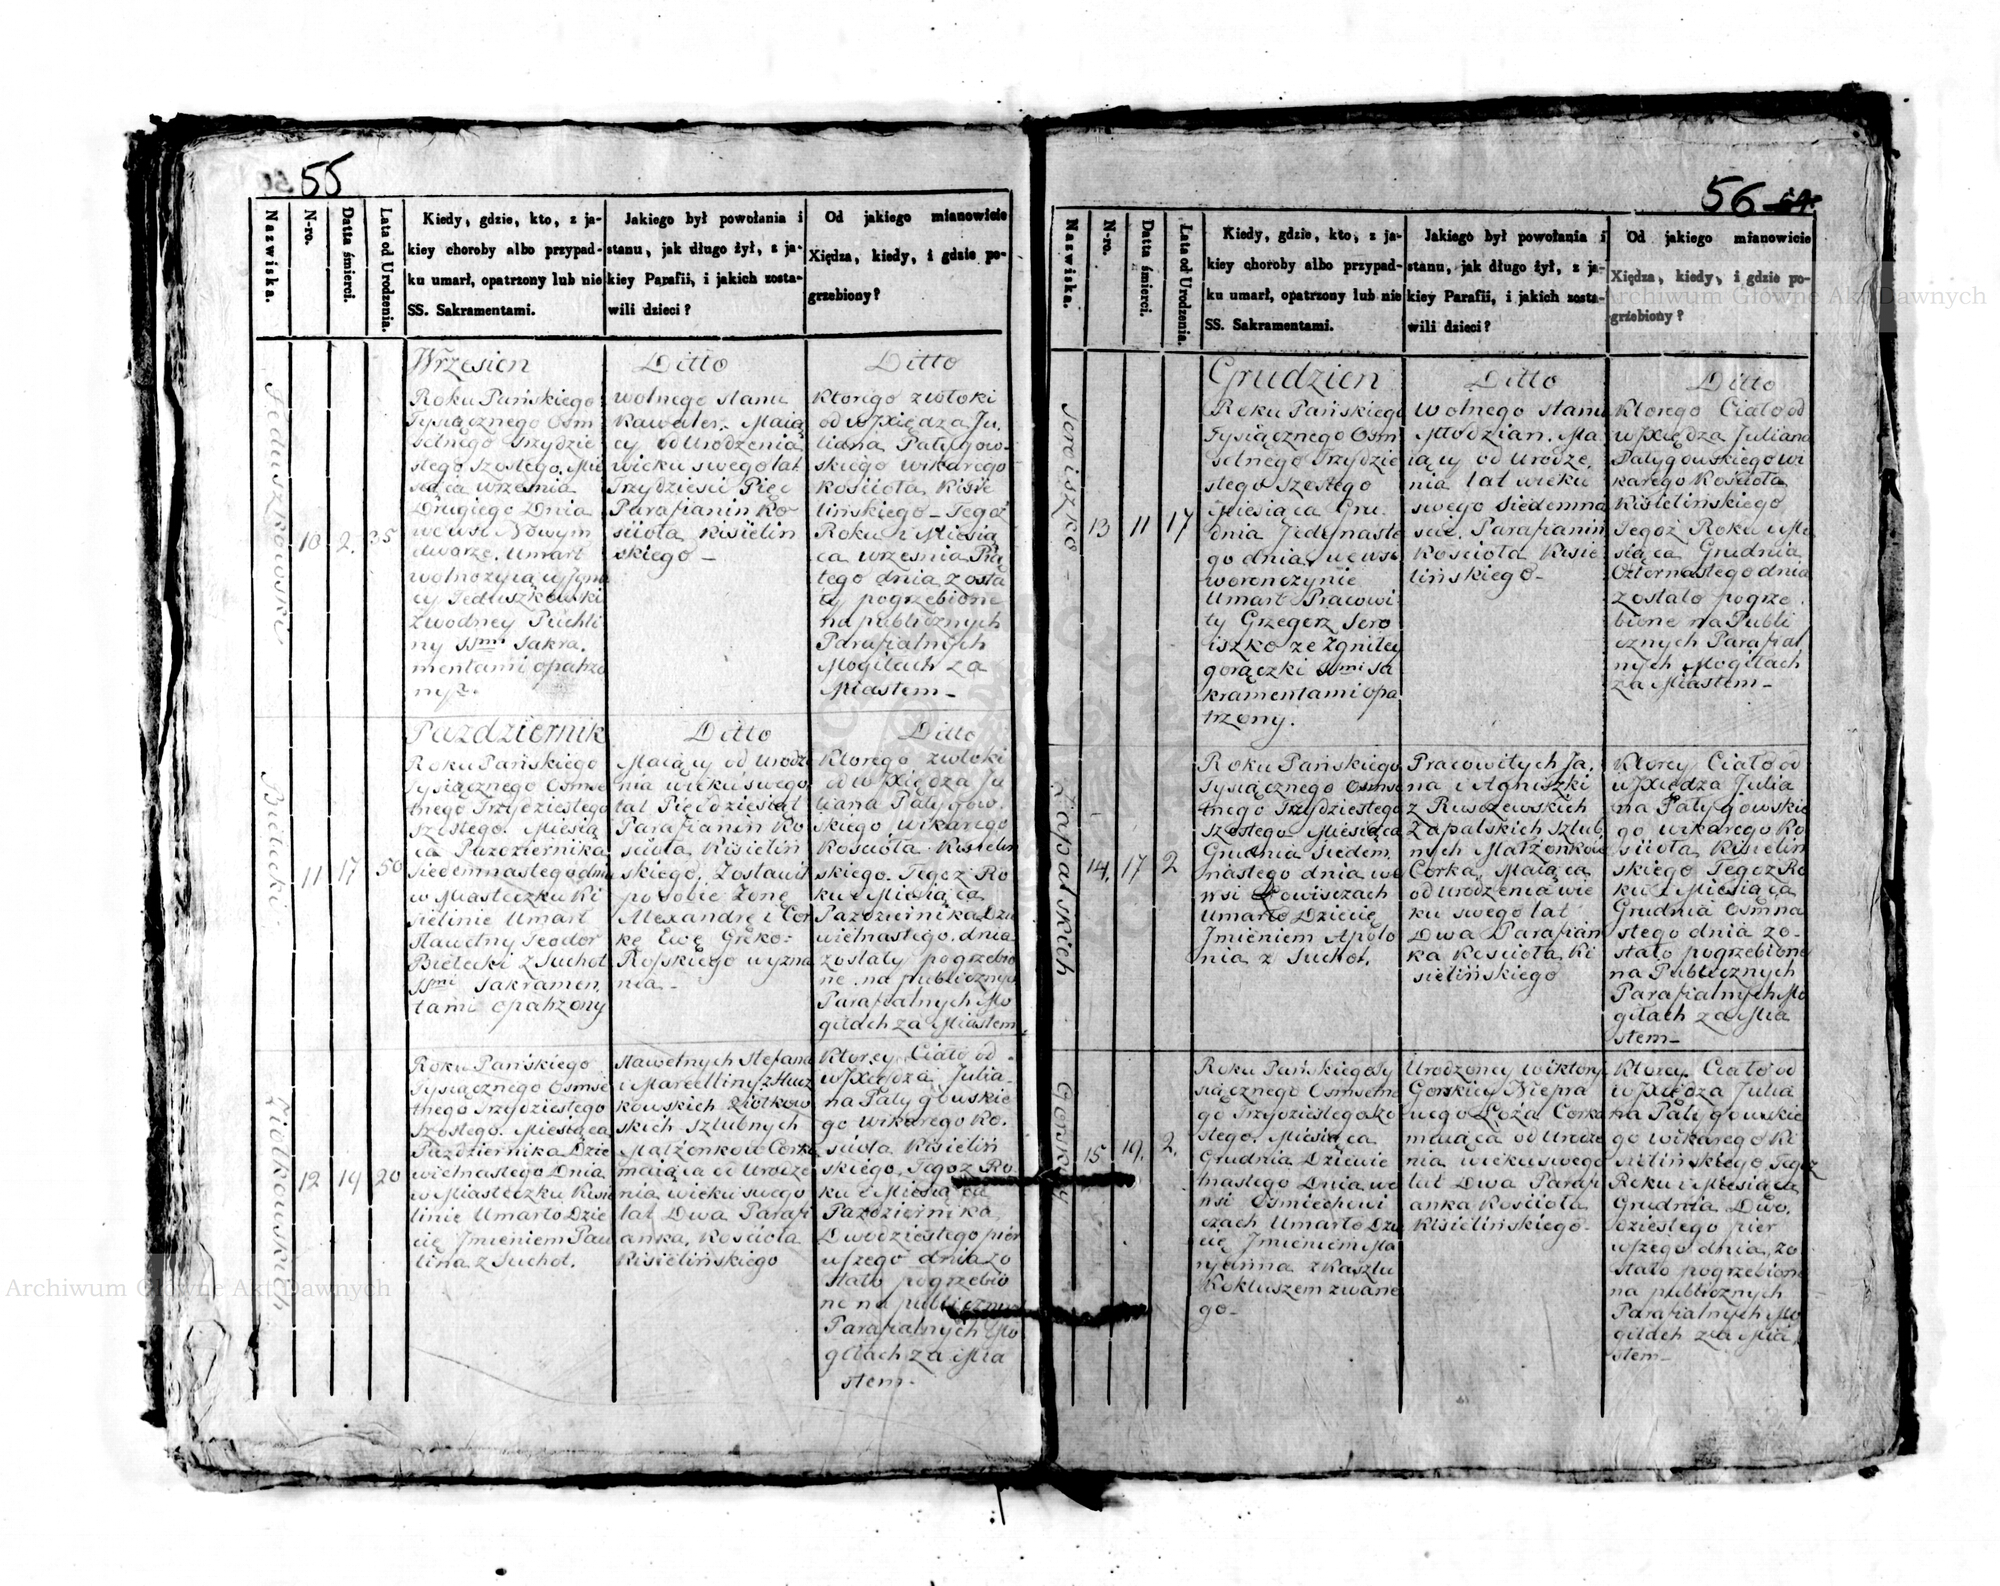 55
Nazwiska.
N-ro.
Datta śmierci.
Lata od Urodzenia.
Kiedy, gdzie, kto, z ja-
kiey choroby albo przypad-
ku umarł, opatrzony lub nie
SS. Sakramentami.
Jakiego był powołania i
stanu, jak długo żył, z ja-
kiey Parafii, i jakich zosta-
wili dzieci?
Od jakiego mianowicie
Xiędza, kiedy, i gdzie po-
grzebiony?
Jeduszkowski
10
2.
35
Wrzesien
Roku Pańskiego
Tysiącznego Osm
setnego Trzydzie
stego Szóstego. Mie
siąca Wrzesnia
Drugiego Dnia
we wsi Nowym
dworze. Umarł
wolnozyiący Igna
cy Jeduszkowski
z wodney Puchli
ny SSmi Sakra.
mentami opatrzo
ny.
Ditto
wolnego stanu
Kawaler. Maią
cy od Urodzenia
wieku swego lat
Trzydziesci Pięć
Parafianin Ko
scioła Kisielin
skiego –
Ditto
Ktorego zwłoki
od WJXiędza Ju.
liana Pałygow-
skiego Wikarego
Kościoła Kisie
lińskiego – Tegoż
Roku i Miesią
ca Wrzesnia Pią
tego dnia zosta
ły pogrzebione
na publicznych
Parafialnych
Mogiłach za
Miastem –
Bielecki
11
17
50
Pazdziernik
Roku Pańskiego
Tysiącznego Osmse
tnego Trzydziestego
Szostego. Miesią
ca Pazdziernika
Siedemnastego dnia
w Miasteczku Ki
sielinie Umarł
sławetny Teodor
Bielecki z Suchot
SSmi Sakramen.
tami opatrzony
Ditto
Maiący od Urodze
nia wieku swego
lat Pięćdziesiąt
Parafianin Ko
scioła Kisielin
skiego. Zostawił
po sobie Zonę
Alexandrę i Cor
kę Ewę Greko=
Rosskiego wyzna
nia –
Ditto
Ktorego zwłoki
od WJXiędza Ju
liana Pałygow.
skiego Wikarego
Kościoła Kisielin
skiego. Tegoz Ro
ku i Miesiąca
Pazdziernika Dzie
wietnastego. dnia
zostały pogrzebio
ne na publicznych
Parafialnych Mo
giłach za Miastem –
Ziołkowskich
12
19
20
Roku Pańskiego
Tysiącznego Osmse
tnego Trzydziestego
Szostego. Miesiąca
Pazdziernika Dzie
wietnastego Dnia
w Miasteczku Kisie
linie Umarło Dzie
cię Imieniem Pau
lina z Suchot.
Sławetnych Stefana
i Marcelliny z
kowskich Ziołkow
skich szlubnych
Małżonkow Corka
maiąca od Urodze
nia wieku swego
lat Dwa Parafi
anka. Kościoła
Kisielińskiego
Ktorey Ciało od –
WJXiędza Julia.
na Pałygowskie
go Wikarego Ko.
scioła Kisielin
skiego. Tegoz Ro
ku i Miesiąca
Pazdziernika
Dwodziestego pier
wszego dnia zo
stało pogrzebio
ne na publicznych
Parafialnych Mo
giłach za Mia
stem –
56
Nazwiska.
N-ro.
Datta śmierci.
Lata od Urodzenia.
Kiedy, gdzie, kto, z ja-
kiey choroby albo przypad-
ku umarł, opatrzony lub nie
SS. Sakramentami.
Jakiego był powołania i
stanu, jak długo żył, z ja-
kiey Parafii, i jakich zosta-
wili dzieci?
Od jakiego mianowicie
Xiędza, kiedy, i gdzie po-
grzebiony?
Seroiszko –
13
11
17
Grudzien
Roku Pańskiego
Tysiącznego Osm
setnego Trzydzie
stego Szostego
Miesiąca Gru.
dnia Jedynaste
go dnia we wsi
Woronczynie
Umarł Pracowi
ty Grzegorz Sero
iszko ze Zgniłey
gorączki SSmi Sa
kramentami opa
trzony.
Ditto
Wolnego stanu
Młodzian. Ma
iący od Urodze.
nia lat wieku
swego Siedemna
scie. Parafianin
Kościoła Kisie
lińskiego –
Ditto
Ktorego Ciało od
WJXiędza Juliana
Pałygowskiego Wi
karego Kościoła
Kisielińskiego
Tegoż Roku i Mie
siąca Grudnia
Czternastego dnia
zostało pogrze
bione na Publi
cznych Parafial
nych Mogiłach
za Miastem –
Zapalskich
14.
17
2
Roku Pańskiego
Tysiącznego Osmse
tnego Trzydziestego
Szostego – Miesiąca
Grudnia Siedem.
nastego dnia we
wsi Łowiszczach
Umarło Dziecię
Imieniem Apolo
nia z Suchot.
Pracowitych Ja.
na i Agnieszki
z Ruszewskich
Zapalskich szlub
nych Małżonkow
Corka, Maiąca
od Urodzenia wie
ku swego lat
Dwa Parafian
ka Kościoła Ki
sielińskiego
Ktorey Ciało od
WJXiędza Julia
na Pałygowskie
go Wikarego Ko
scioła Kisielin
skiego Tegoz Ro
ku i Miesiąca
Grudnia Osmna
stego dnia zo-
stało pogrzebione
na Publicznych
Parafialnych Mo
giłach za Mia
stem –
Gorskiey
15
19.
2.
Roku Pańskiego Ty
siącznego Osmsetne
go Trzydziestego Szo
stego. Miesiąca
Grudnia Dziewie
tnastego Dnia we
wsi Osmiechowi
czach Umarło Dzie
cię Imieniem Ma
ryanna z Kaszlu
Kokluszem zwane
go –
Urodzoney Wiktoryi
Gorskiey Niepra
wego Łoża Corka
maiąca od Urodze
nia wieku swego
lat Dwa Parafi
anka Kościoła
Kisielińskiego –
Ktorey. Ciało od
WJXiędza Julia
na Pałygowskie
go Wikarego Ki
sielińskiego Tegoz
Roku i Miesiąca
Grudnia Dwo.
dziestego pier
wszego dnia, zo
stało pogrzebione
na publicznych
Parafialnych Mo
giłach za Mia
stem –
Archiwum Główne Akt Dawnych
Archiwum Główne Akt Dawnych